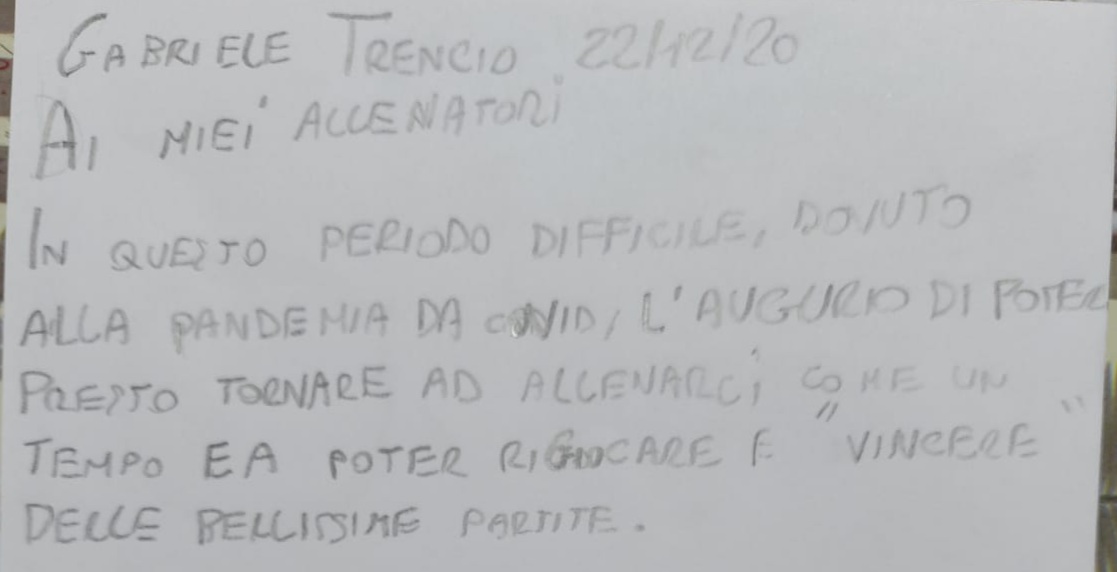 GABRIELE TRENCIO 22/12/20
AI MIEI ALLENATORI
IN QUESTO PERIODO DIFFICILE, DOVUTO
ALLA PANDEMIA DA COVID, L'AUGURIO DI POTER
PRESTO TORNARE AD ALLENARCI COME UN
TEMPO E A POTER RIGIOCARE E "VINCERE"
DELLE BELLISSIME PARTITE.